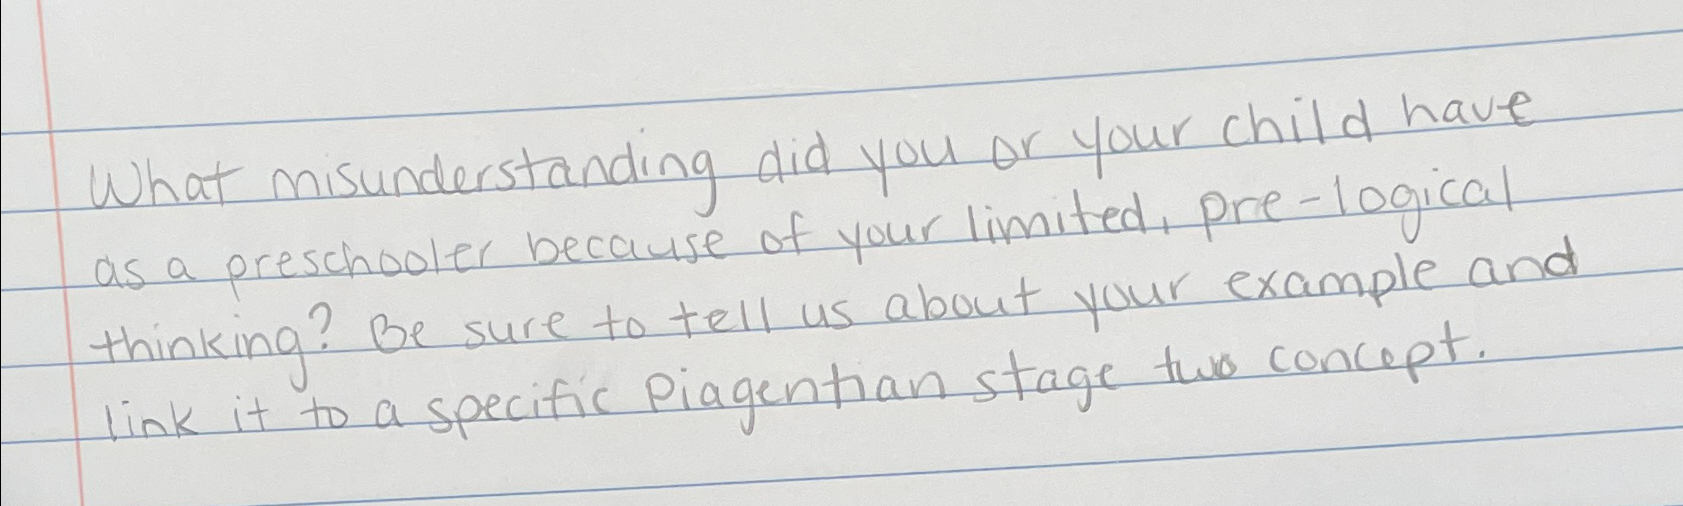 What misunderstanding did you or your child have
as a preschooler because of your limited, pre-logical
thinking? Be sure to tell us about your example and
link it to a specific Piagentian stage two concept.